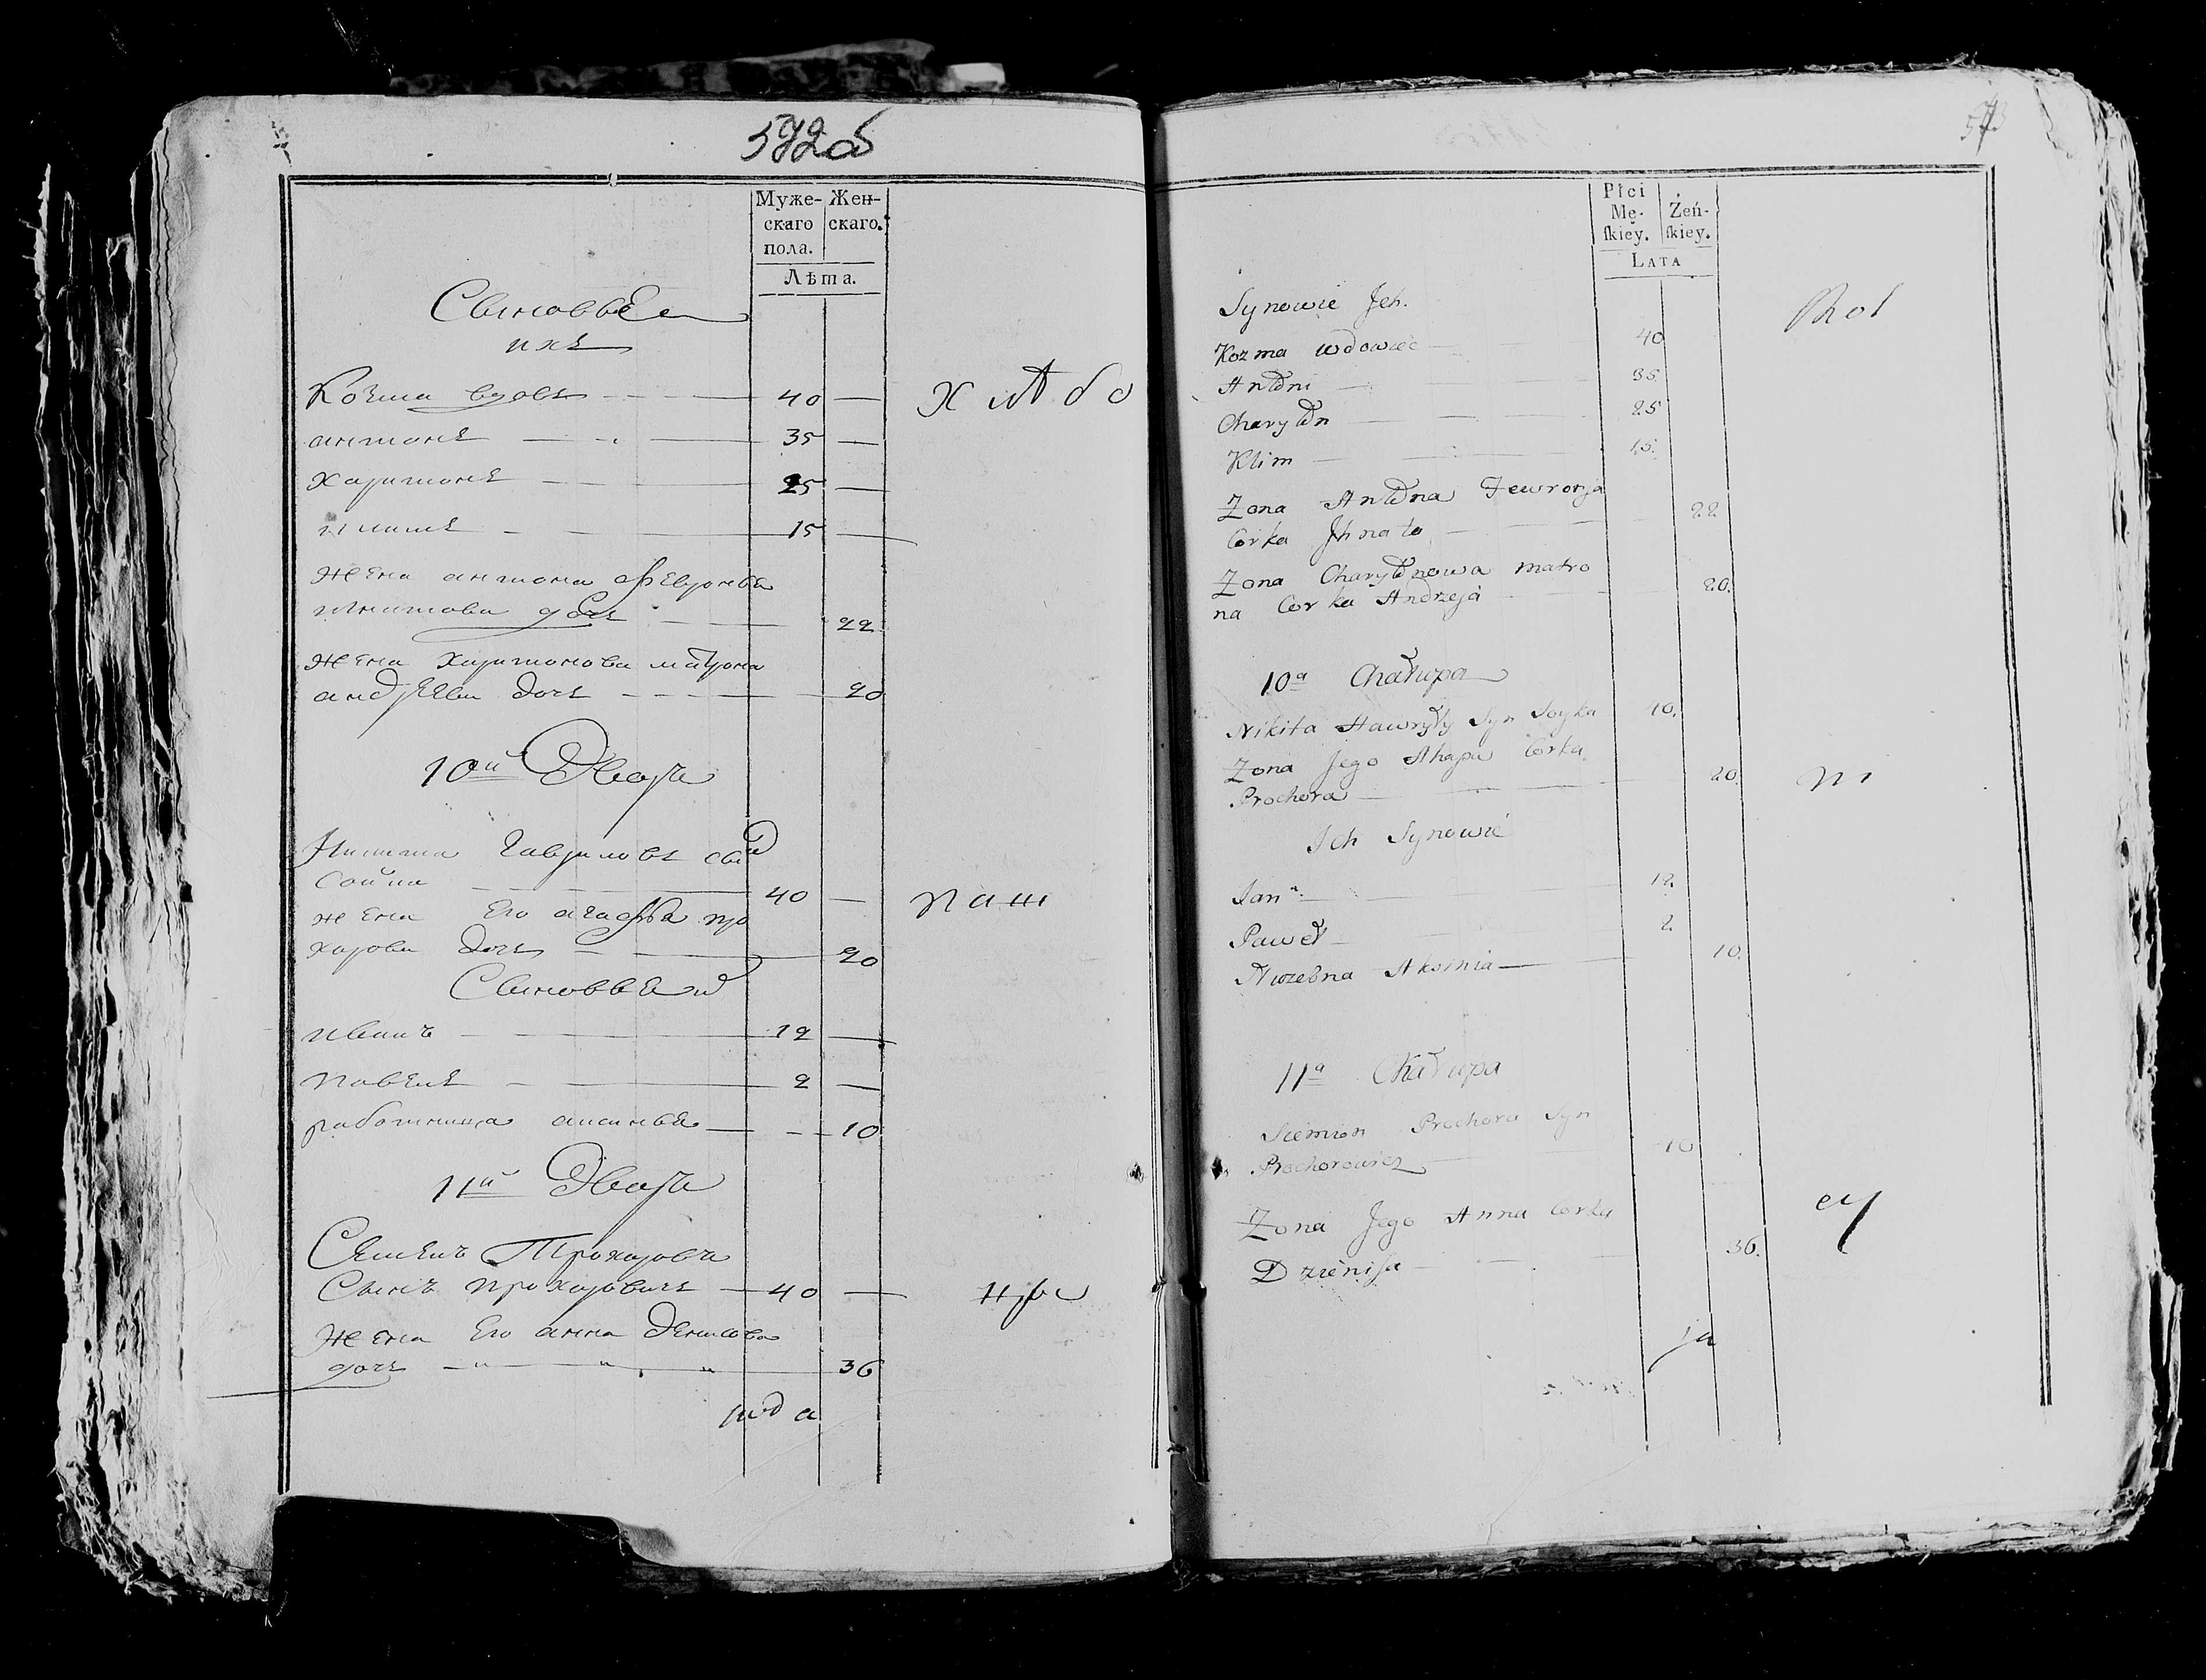 592об
Муже-
скаго
пола.
Жен-
скаго.
Лѣта.
Сыновьѣ
ихъ
Козма вдовъ 40 —
антонъ 35 —
харитонъ 25 —
климъ 15 —
жена антона февронья
дочь 22
жена харитонова матрона
андреева дочь 20
хлѣбо
10й Дворъ
Никита гавриловъ сын
сойка 40 —
жена его агафья про
хорова дочь 20
Сыновья
иванъ 12 —
павелъ 2 —
работница аксинья 10
паш
11й Дворъ
Семенъ Прохоровъ
Сынъ прохоровичь 40 —
Жена Его анна денисова
дочь 36
Płci
Mę-
ſkiéy.
Żeń-
ſkiey.
LATA
Synowie Jch.
Kozma wdowiec 40
Antoni 35
Charyton 25
Klim 15
Zona Antona Jewronja
Corka Jhnata 22
Zona Charytonowa Matro
na Corka Andrzeja 20.
Rol
10a Chałupa
Nikita Hawryły Syn Soyka 40.
Zona Jego Ahapa Corka
Prochora 20.
Ich Synowie
Jan 12
Paweł 2.
Aksinia 10.
ni
11a Chałupa
Siemion Prochora Syn
Prochorowicz 40
Zona Jego Anna Corka
Dzienisa 36.
cy